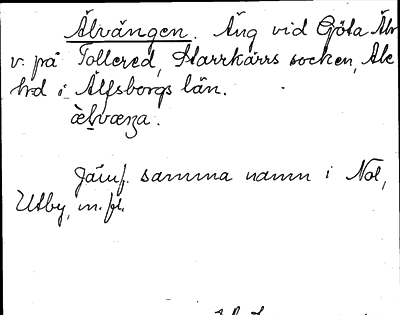 Älvängen. Äng vid Göta Älv
v. på Tollered, Starrkärrs socken, Ale
hrd i Älfsborgs län.
Jämf. samma namn i Nol,
Utby, m. fl.